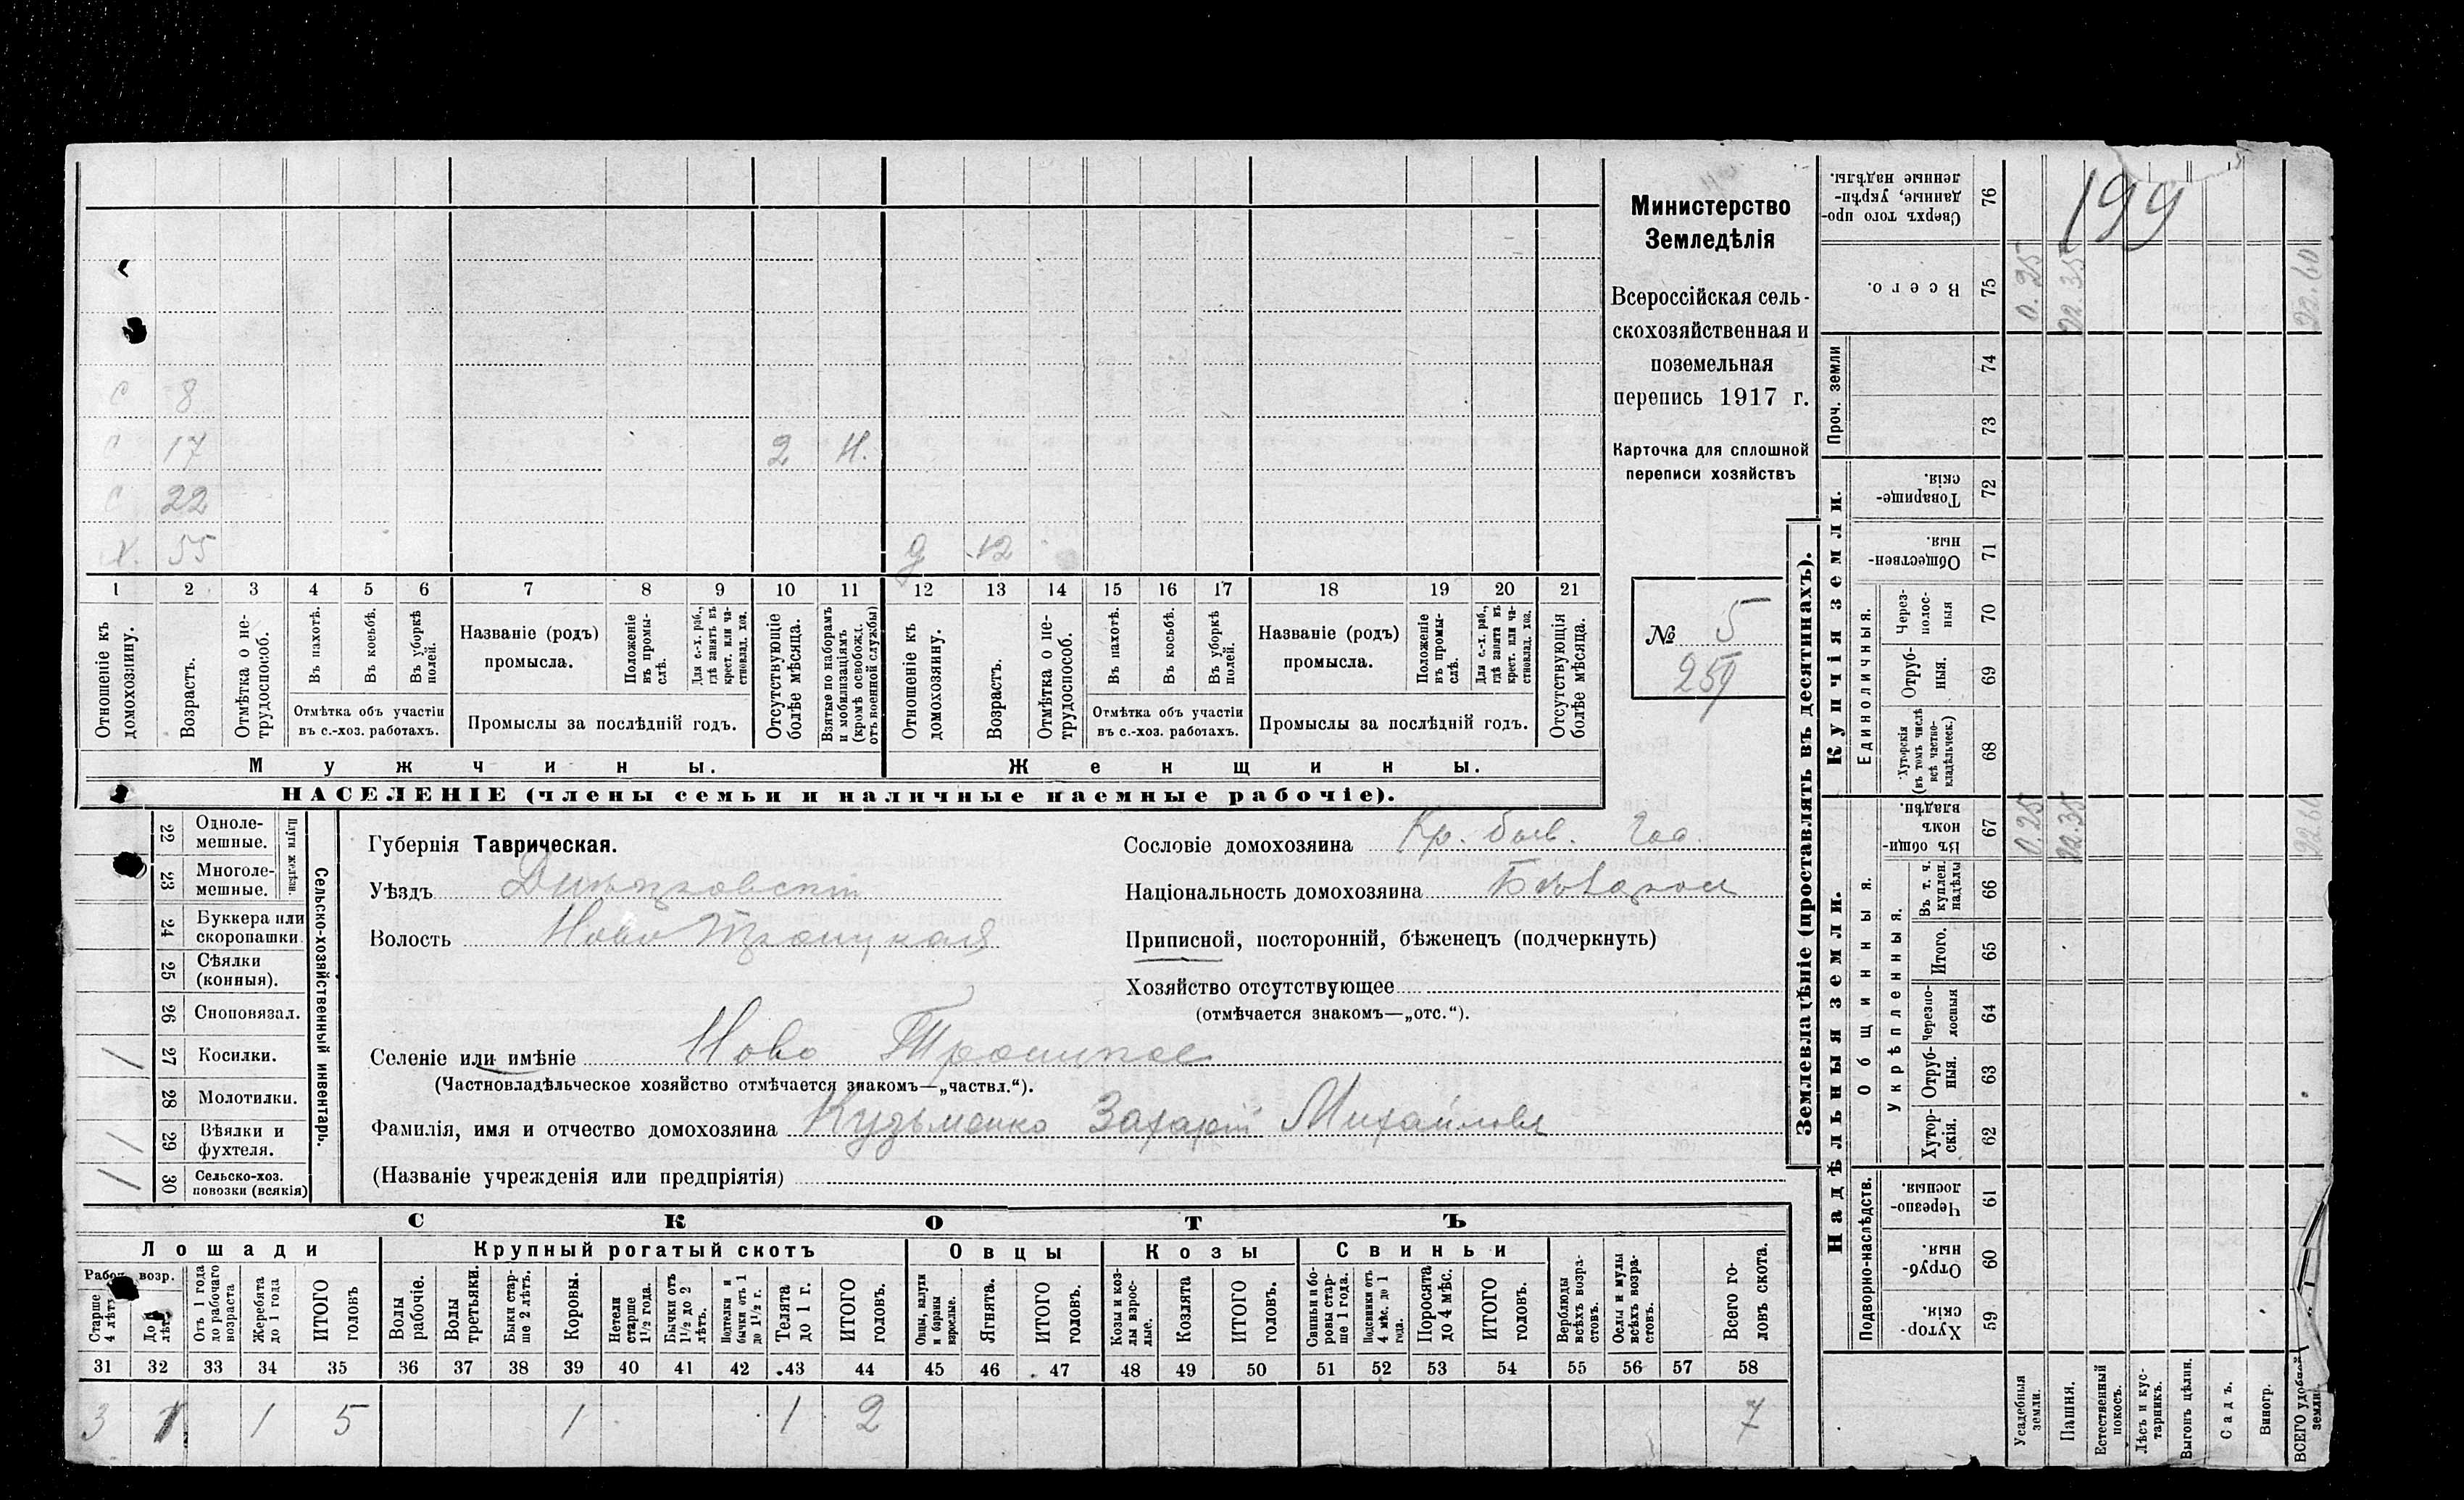 199
Министерство
Земледѣлія
Всероссійская сель-
скохозяйственная и
поземельная
перепись 1917 г.
Карточка для сплошной
переписи хозяйствъ
№ 5
259
с 8
с 17 2 Н.
с 22
Х. 55 д 12
1 2 3 4 5 6 7 8 9 10 11 12 13 14 15 16 17 18 19 20 21
Отношеніе къ домохозяину.
Возрастъ.
Отмѣтка о не-трудоспособ.
Въ пахотѣ.
Въ косьбѣ.
Въ уборкѣ полей.
Отмѣтка объ участіи
въ с.-хоз. работахъ.
Названіе (родъ)
промысла.
Положеніе въ промы-слѣ.
Для с.-х. раб., гдѣ занятъ въ крест. или ча-стновлад. хоз.
Промыслы за послѣдній годъ.
Отсутствующіе болѣе мѣсяца.
Взятые по наборамъ и мобилизаціямъ (кромѣ освобожд. отъ военной службы)
Отношеніе къ домохозяину.
Возрастъ.
Отмѣтка о не-трудоспособ.
Въ пахотѣ.
Въ косьбѣ.
Въ уборкѣ полей.
Отмѣтка объ участіи
въ с.-хоз. работахъ.
Названіе (родъ)
промысла.
Положеніе въ промы-слѣ.
Для с.-х. раб., гдѣ занята въ крест. или ча-стновлад. хоз.
Промыслы за послѣдній годъ.
Отсутствующія болѣе мѣсяца.
Мужчины. Женщины.
НАСЕЛЕНІЕ (члены семьи и наличные наемные рабочіе).
Сельско-хозяйственный инвентарь.
Плуги желѣзн.
22 Одноле-мешные.
23 Многоле-мешные.
24 Буккера или скоропашки
25 Сѣялки (конныя).
26 Сноповязал.
/ 27 Косилки.
28 Молотилки.
/ 29 Вѣялки и фухтеля.
/ 30 Сельско-хоз. повозки (всякія)
Губернія Таврическая.
Уѣздъ Днѣпровскій
Волость Ново Троицкая
Селеніе или имѣніе Ново Троицкое
(Частновладѣльческое хозяйство отмѣчается знакомъ—„частвл.“).
Фамилія, имя и отчество домохозяина Кузьменко Захарій Михайловъ
(Названіе учрежденія или предпріятія)
Сословіе домохозяина Кр. быв. Гос.
Національность домохозяина
Приписной, посторонній, бѣженецъ (подчеркнуть)
Хозяйство отсутствующее
(отмѣчается знакомъ—„отс.“).
СКОТЪ
Лошади Крупный рогатый скотъ Овцы Козы Свиньи
Рабоч. возр.
Старше 4 лѣтъ
До 4 лѣтъ
Отъ 1 года до рабочаго возраста
Жеребята до 1 года
ИТОГО головъ
Волы рабочіе.
Волы третьяки.
Быки стар-ше 2 лѣтъ.
Коровы.
Нетели старше 1½ года.
Бычки отъ 1½ до 2 лѣтъ.
Подтелки и бычки отъ 1 до 1½ г.
Телята до 1 г.
ИТОГО головъ.
Овцы, валухи и бараны взрослые.
Ягнята.
ИТОГО головъ.
Козы и коз-лы взрос-лые.
Козлята
ИТОГО головъ.
Свиньи и бо-ровы стар-ше 1 года.
Подсвинки отъ 4 мѣс. до 1 года.
Поросята до 4 мѣс.
ИТОГО головъ.
Верблюды всѣхъ возра-стовъ.
Ослы и мулы всѣхъ возра-стовъ.
Всего го-ловъ скота.
31 32 33 34 35 36 37 38 39 40 41 42 43 44 45 46 47 48 49 50 51 52 53 54 55 56 57 58
3 1 1 5 1 1 2 7
Землевладѣніе (проставлять въ десятинахъ).
Надѣльныя земли. Купчія земли.
Подворно-наслѣдств.
Общинныя.
Укрѣпленныя.
Единоличныя.
Проч. земли
59 Хутор-скія.
60 Отруб-ныя.
61 Черезпо-лосныя.
62 Хутор-скія.
63 Отруб-ныя.
64 Черезпо-лосныя
65 Итого.
66 Въ т. ч. куплен. надѣлы
67 Въ общи-номъ владѣн. 0.25 22.35 22.60
68 Хуторскія (въ томъ числѣ всѣ частно-владѣльческ.)
69 Отруб-ныя.
70 Через-полос-ныя
71 Обществен-ныя.
72 Товарище-скія.
73
74
75 Всего. 0.25 22.35 22.60
76 Сверхъ того про-данные, укрѣп-ленные надѣлы.
Усадебныя земли.
Пашня.
Естественный покосъ.
Лѣсъ и кус-тарникъ.
Выгонъ цѣлин.
Садъ.
Виногр.
ВСЕГО удобной земли.